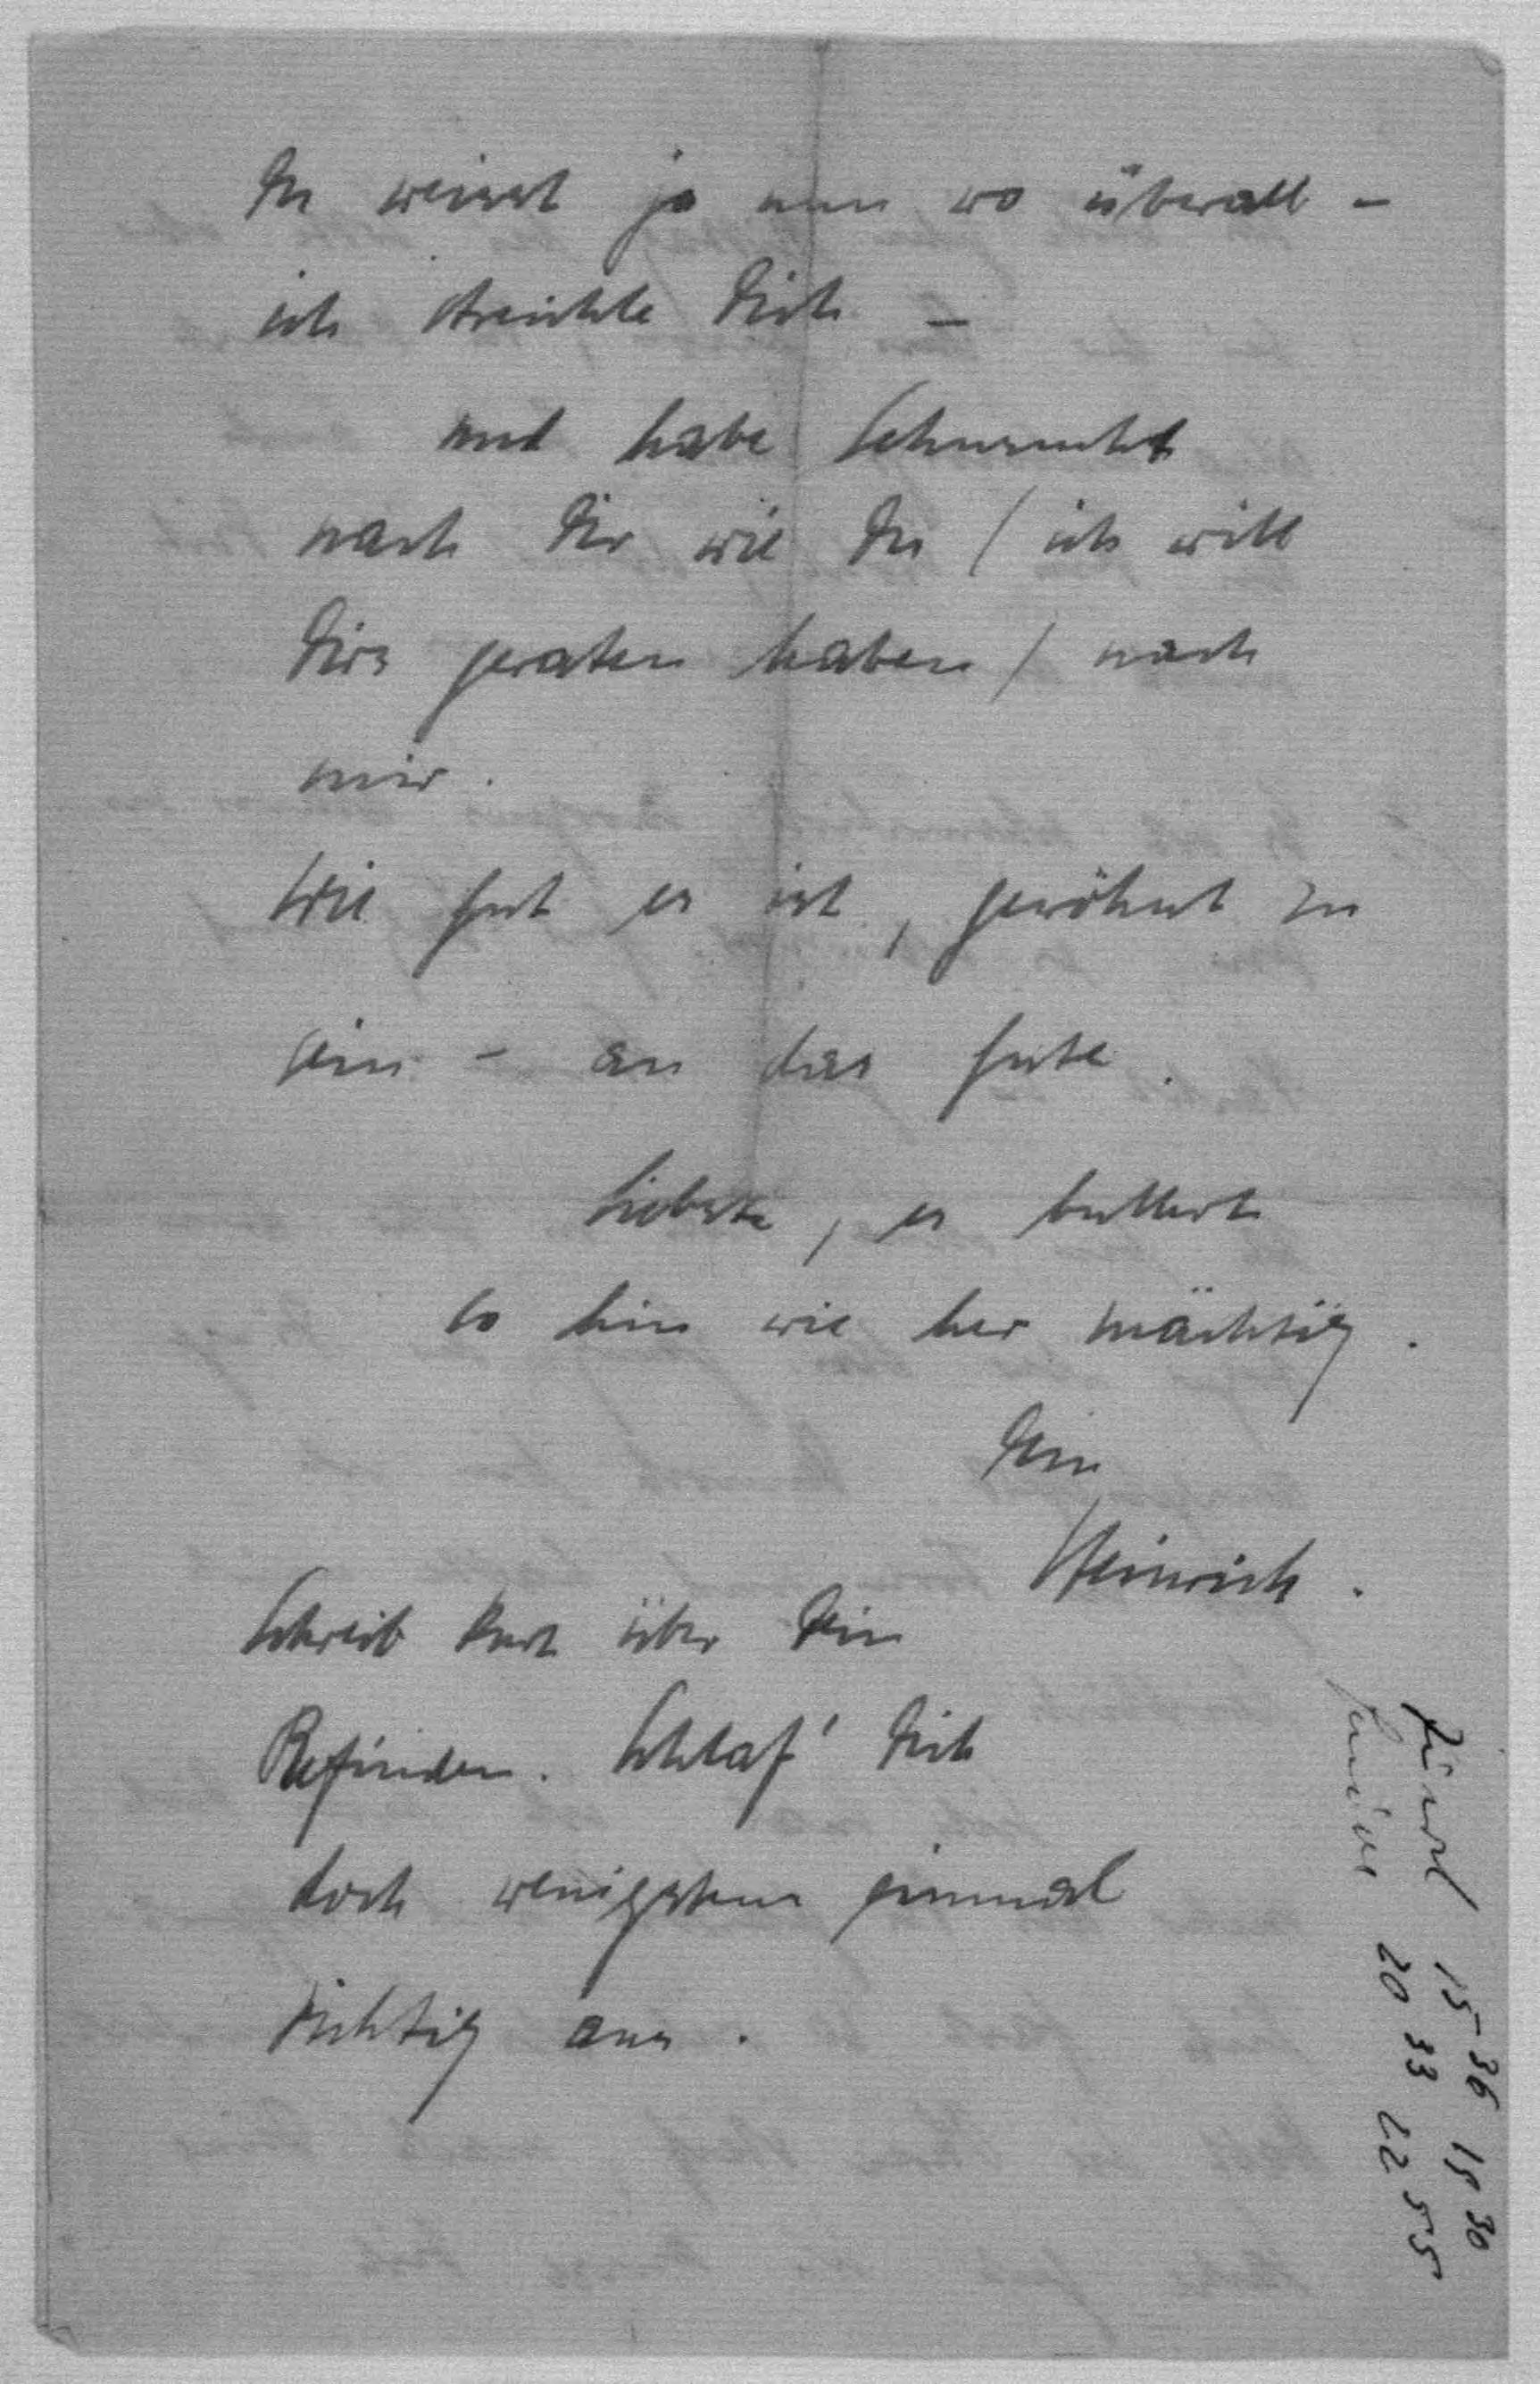 Du weisst ja nun wo überall –
ich streichle Dich –
und habe Sehnsucht
nach Dir wie Du / ich will
Dirs geraten haben / nach
mir.
Wie gut es ist, gewöhnt zu
sein – an das Gute.
Liebste, es bullert
so hin wie her mächtig.
Dein
Heinrich.
Schreib kurz über Dein
Befinden. Schlaf' Dich
doch wenigstens einmal
richtig aus.
15 36 15 30
20 33 22 55